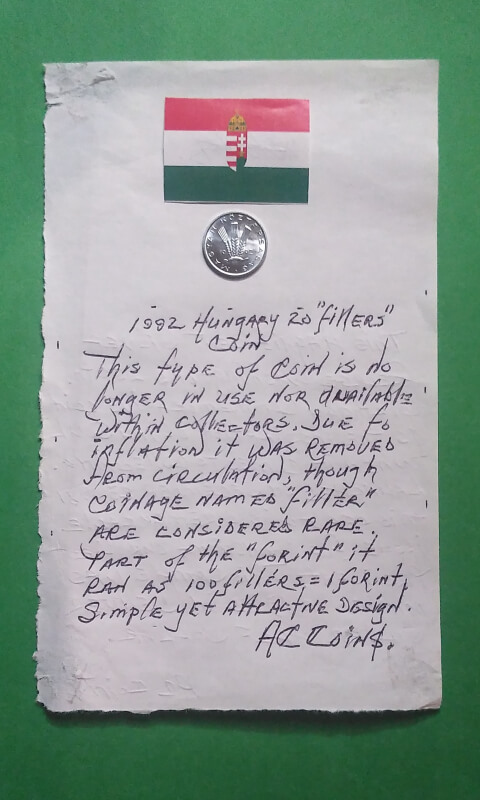 MAGYAR KÖZTÁRSASÁG
1992 HUNGARY 20 "fillers"
COIN
This type of coin is no
longer in use nor available
within collectors. Due to
inflation it was removed
from circulation, though
coinage named "fillér"
are considered rare.
Part of the "forint" it
ran as 100 fillers = 1 forint.
Simple yet attractive design.
AC COIN$.